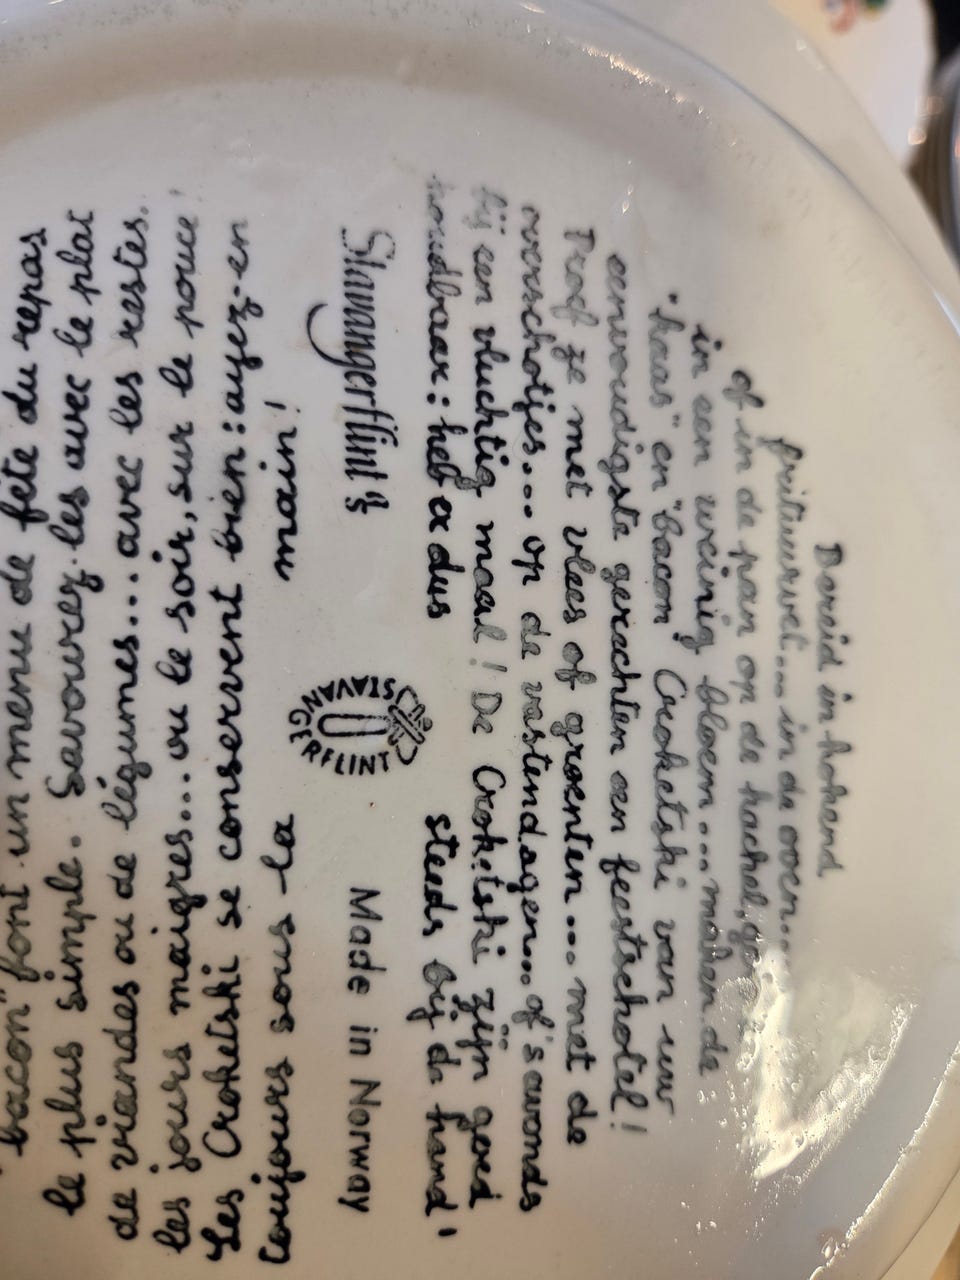 Bereid in kokend
frituurvet... in de oven...
of in de pan op de kachel,
in een weinig bloem... maken de
"kaas" en "bacon" Croketski van uw
eenvoudigste gerechten een feestschotel!
Proef ze met vlees of groenten... met de
overschotjes... op de vastendagen... of 's avonds
bij een vluchtig maal! De Croketski zijn goed
houdbaar: heb er dus steeds bij de hand!
Stavangerflint A/S STAVANGERFLINT Made in Norway
bacon" font un menu de fête du repas
le plus simple. Savourez-les avec le plat
de viandes ou de légumes... avec les restes.
les jours maigres... ou le soir, sur le pouce!
Les Croketski se conservent bien: ayez-en
toujours sous la main!